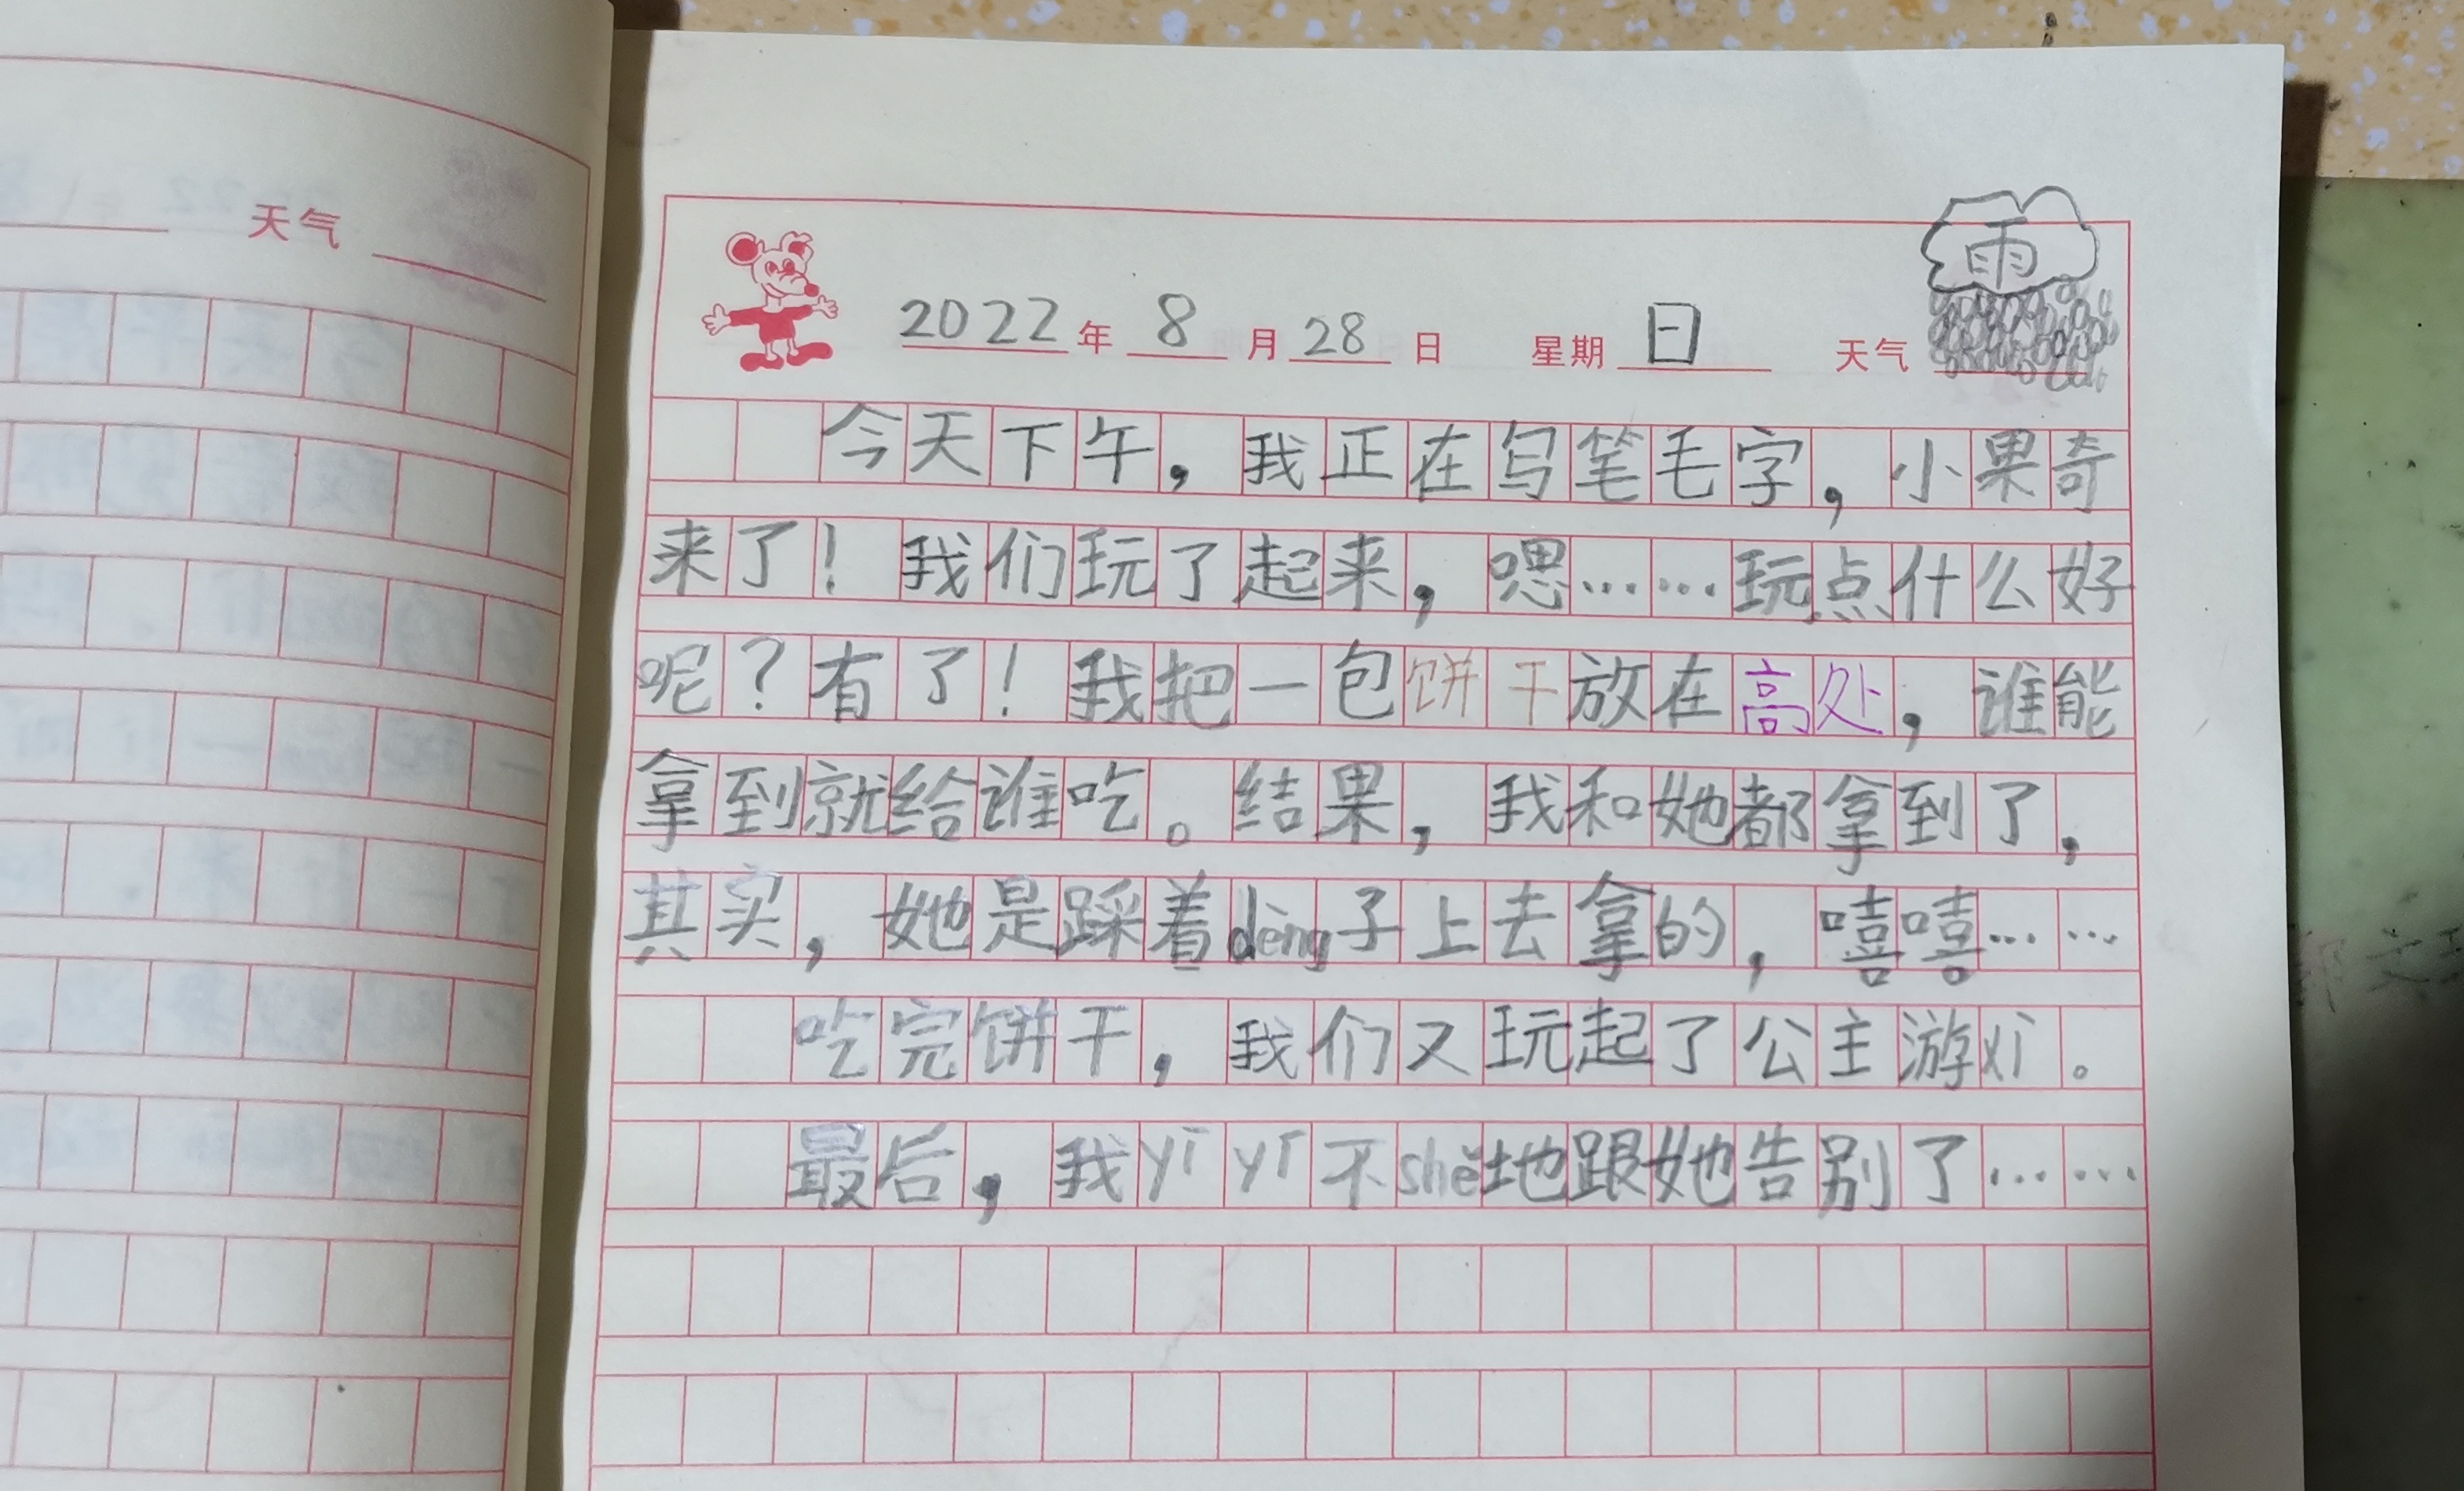 天气
2022年 8月28日 星期日 天气 雨
今天下午，我正在写笔毛字，小果奇
来了！我们玩了起来，嗯……玩点什么好
呢？有了！我把一包饼干放在高处，谁能
拿到就给谁吃。结果，我和她都拿到了，
其实，她是踩着dèng子上去拿的，嘻嘻……
吃完饼干，我们又玩起了公主游xì。
最后，我yī yī不shě地跟她告别了……